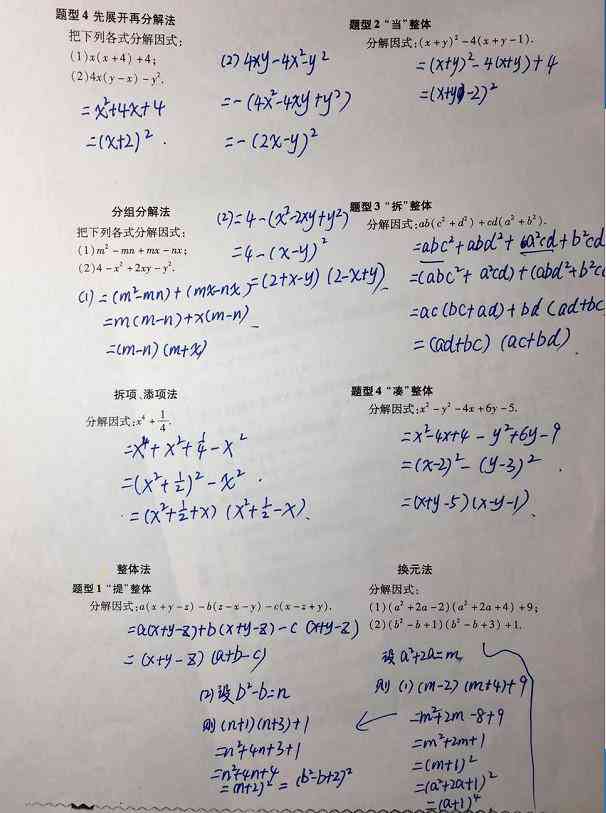 题型4 先展开再分解法
把下列各式分解因式:
(1)x(x+4)+4;
(2)4x(y-x)-y².
=x²+4x+4
=(x+2)².
(2) 4xy-4x²-y²
=-(4x²-4xy+y²)
=-(2x-y)²
题型2 “当”整体
分解因式:(x+y)²-4(x+y-1).
=(x+y)²-4(x+y)+4
=(x+y-2)²
分组分解法
把下列各式分解因式:
(1)m²-mn+mx-nx;
(2)4-x²+2xy-y².
(2)=4-(x²-2xy+y²)
=4-(x-y)²
=(2+x-y)(2-x+y)
(1)=(m²-mn)+(mx-nx)
=m(m-n)+x(m-n)
=(m-n)(m+x)
题型3 “拆”整体
分解因式:ab(c²+d²)+cd(a²+b²).
=abc²+abd²+a²cd+b²cd
=(abc²+a²cd)+(abd²+b²c
=ac(bc+ad)+bd(ad+bc
=(ad+bc)(ac+bd)
拆项、添项法
分解因式:x⁴+1/4.
=x⁴+x²+1/4-x²
=(x²+1/2)²-x².
=(x²+1/2+x)(x²+1/2-x)
题型4 “凑”整体
分解因式:x²-y²-4x+6y-5.
=x²-4x+4-y²+6y-9
=(x-2)²-(y-3)².
=(x+y-5)(x-y-1)
整体法
题型1 “提”整体
分解因式:a(x+y-z)-b(z-x-y)-c(x-z+y).
=a(x+y-z)+b(x+y-z)-c(x+y-z)
=(x+y-z)(a+b-c)
换元法
分解因式:
(1)(a²+2a-2)(a²+2a+4)+9;
(2)(b²-b+1)(b²-b+3)+1.
设a²+2a=m
则(1)(m-2)(m+4)+9
=m²+2m-8+9
=m²+2m+1
=(m+1)²
=(a²+2a+1)²
=(a+1)⁴
(2)设b²-b=n
则(n+1)(n+3)+1
=n²+4n+3+1
=n²+4n+4
=(n+2)²=(b²-b+2)²